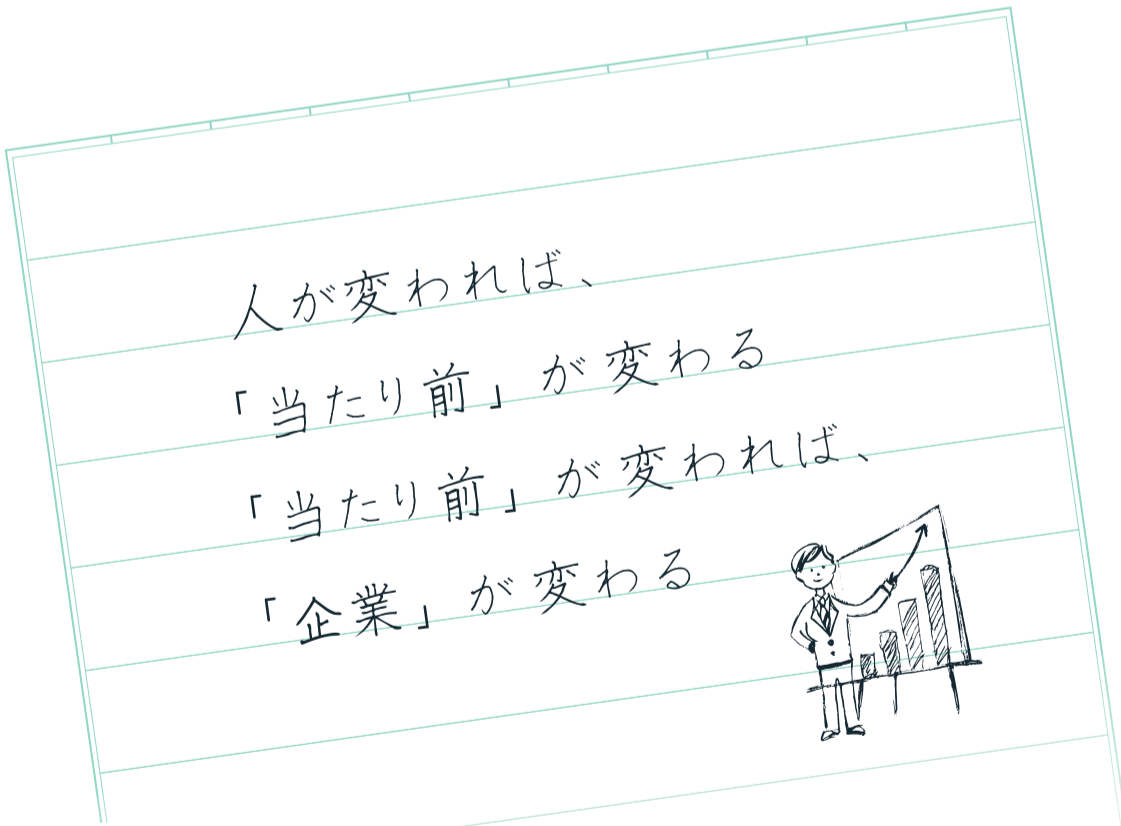 人が変われば、
「当たり前」が変わる
「当たり前」が変われば、
「企業」が変わる